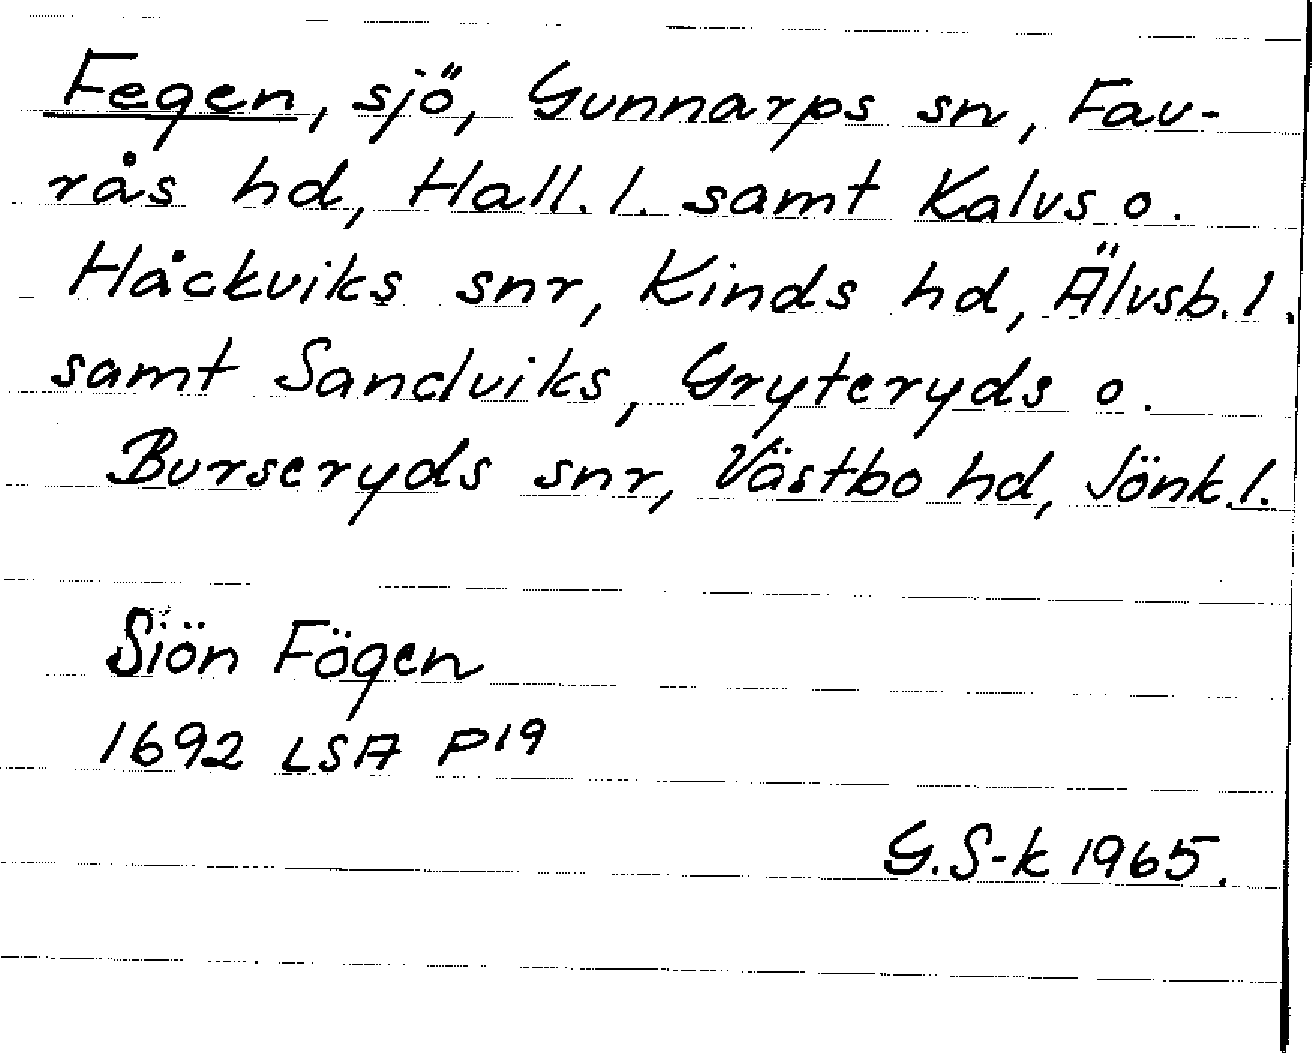 Fegen, sjö, Gunnarps sn, Fau-
rås hd, Hall. l. samt Kalvs o.
Håckviks snr, Kinds hd, Älvsb. l.
samt Sandviks, Gryteryds o.
Burseryds snr, Västbo hd, Jönk. l.
Siön Fögen
1692 LSA P19
G. S-k 1965.